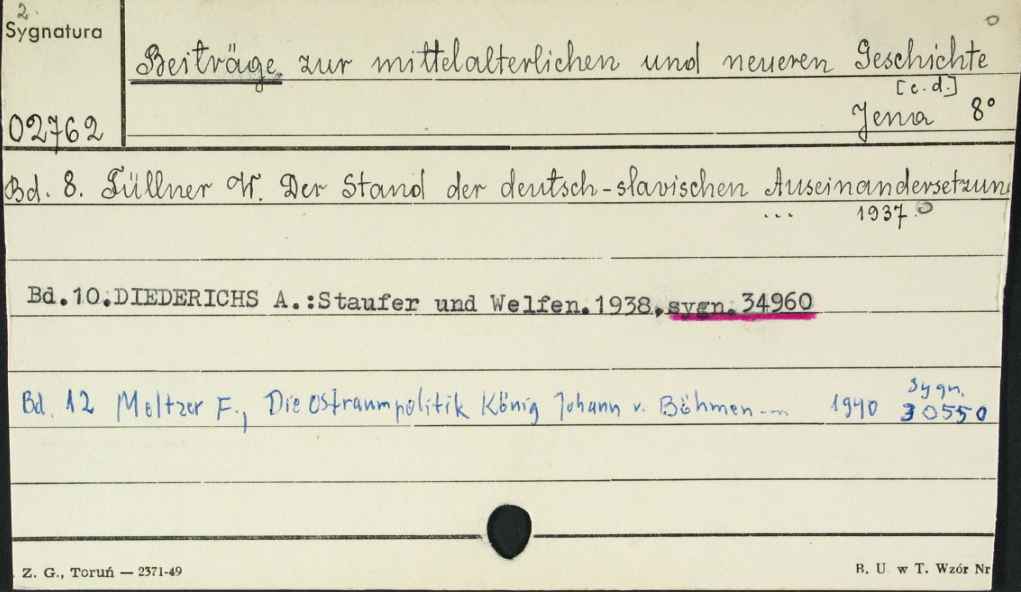 2.
Sygnatura
Beiträge zur mittelalterlichen und neueren Geschichte
[c.d.]
02762
Jena 8°
Bd. 8. Füllner W. Der Stand der deutsch-slavischen Auseinandersetzung
... 1937.
Bd.10.DIEDERICHS A.:Staufer und Welfen.1938, sygn.34960
Sygn.
Bd. 12 Meltzer F., Die Ostraumpolitik König Johann v. Böhmen... 1940 30550
Z. G., Toruń — 2371-49
B. U w T. Wzór Nr